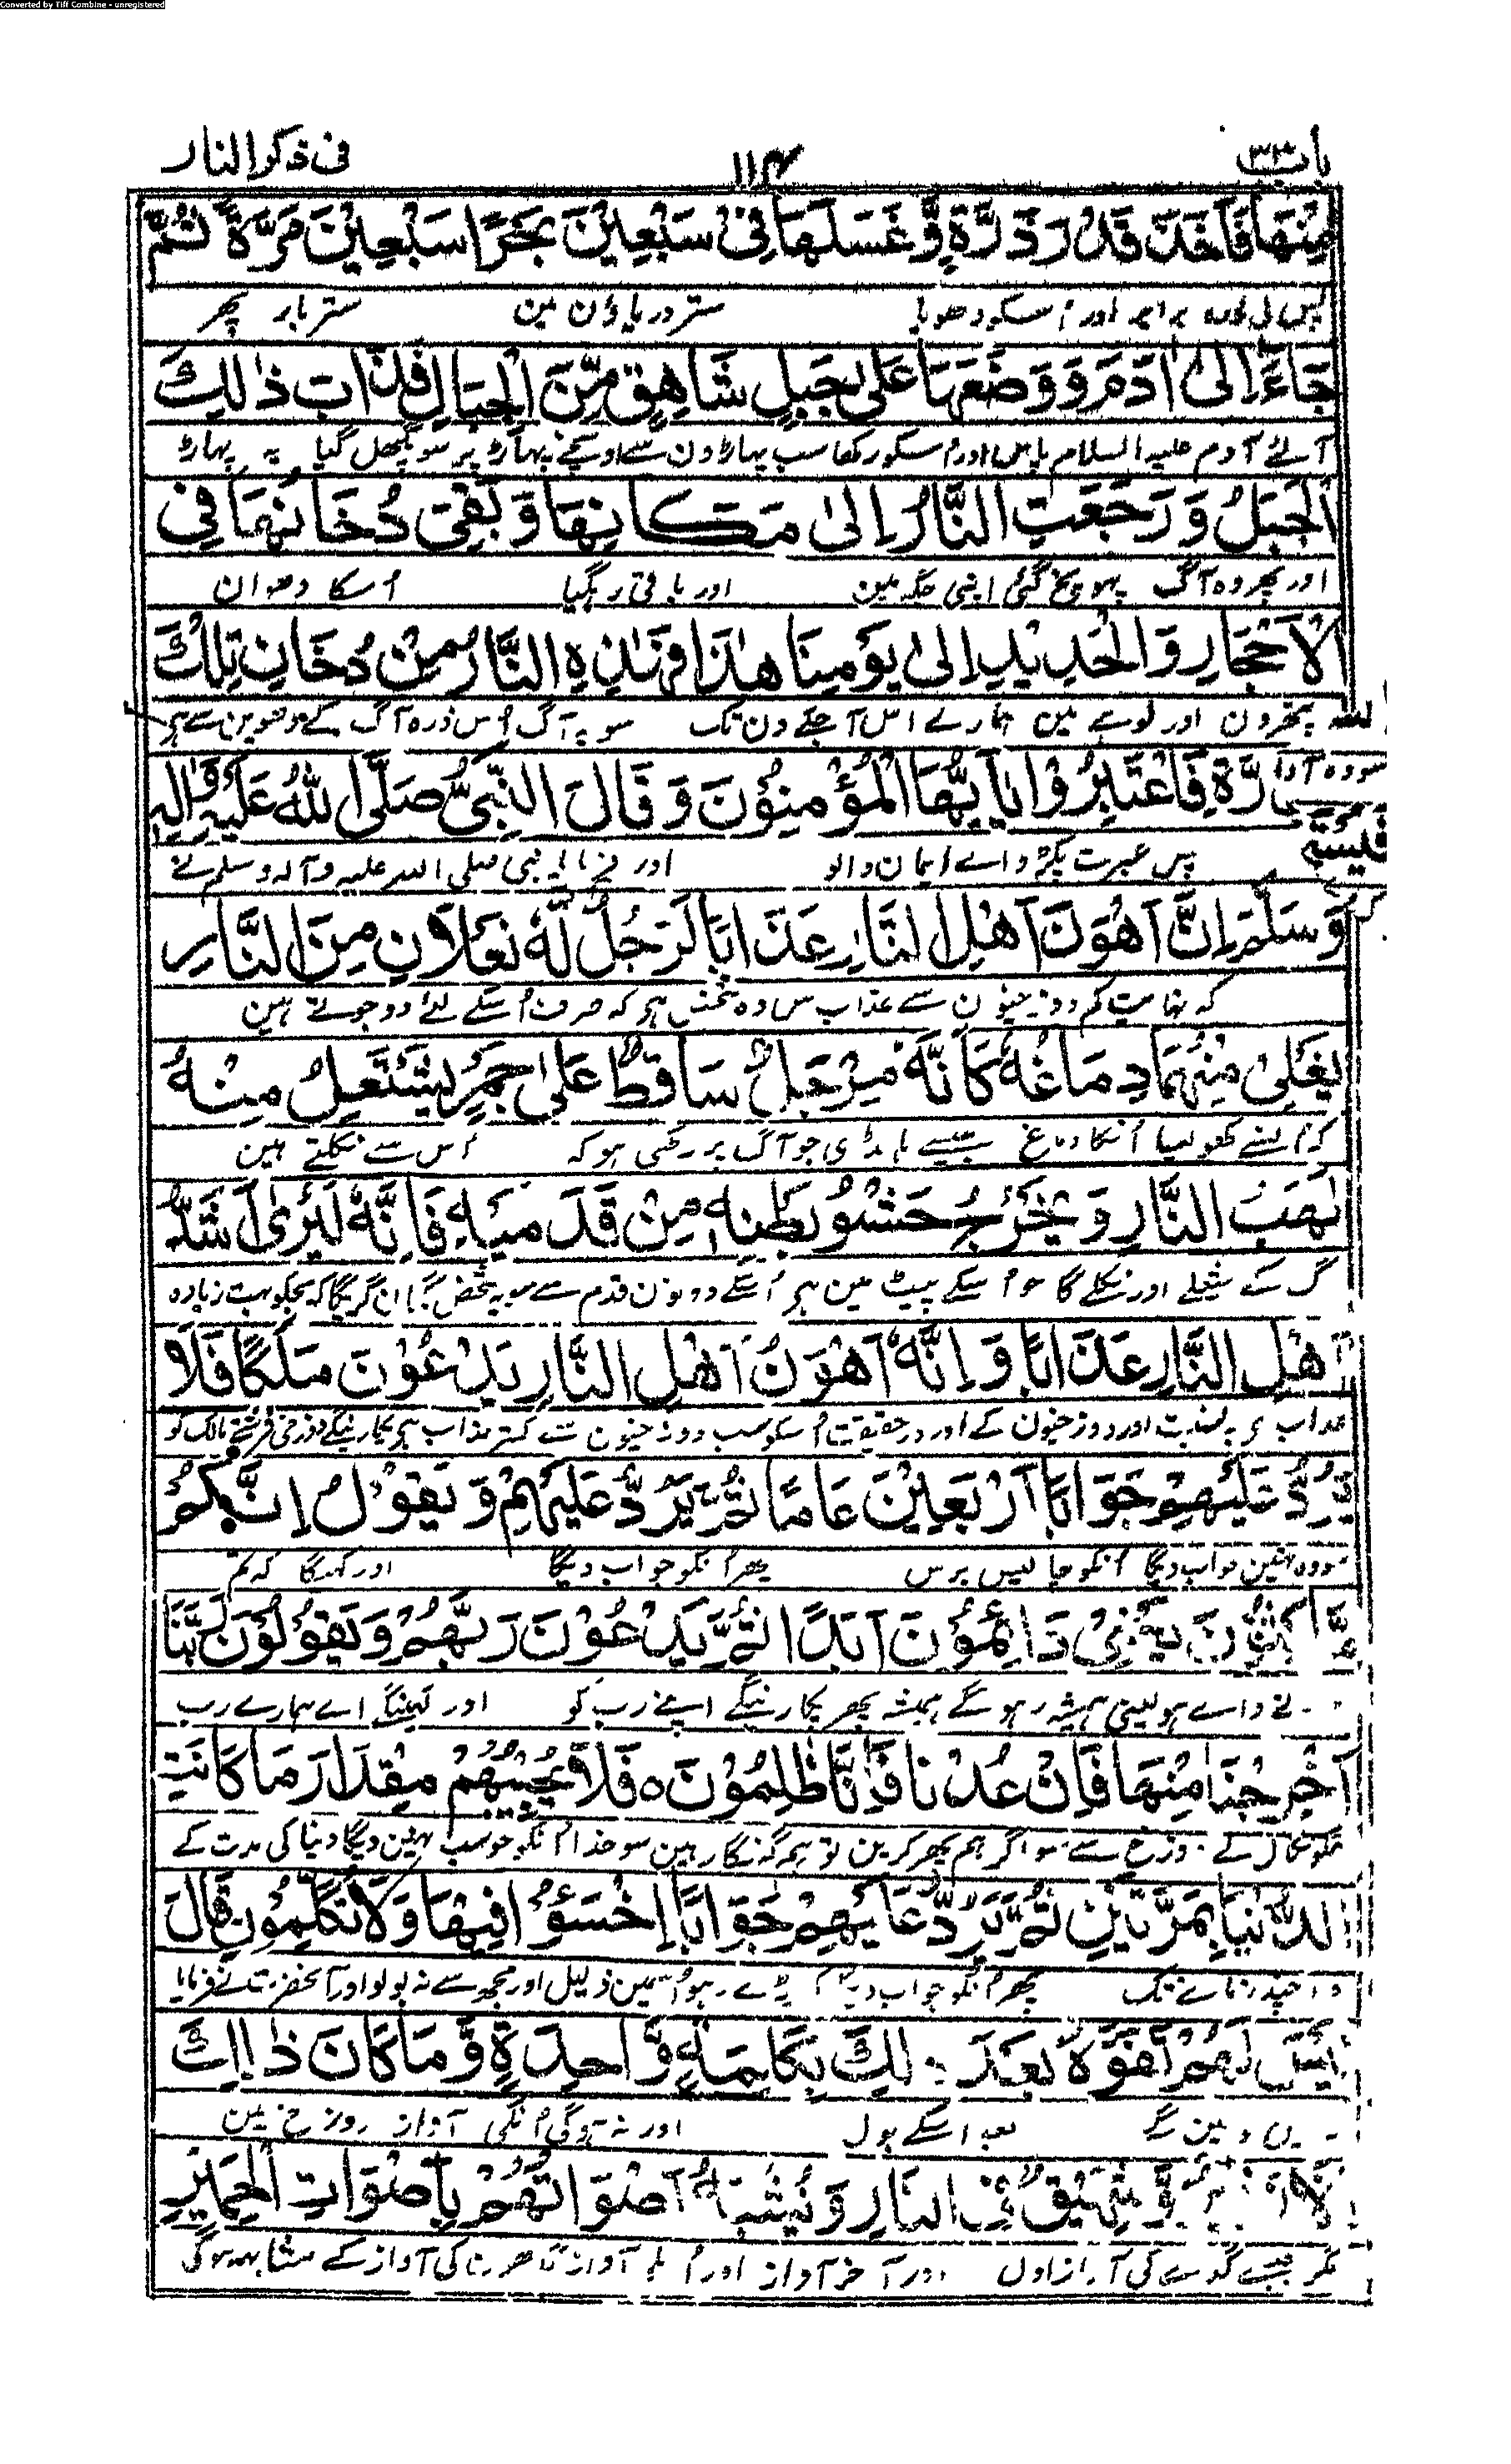 Converted by Tiff Combine - unregistered
باب ۳۳
۱۱۴
فی ذکر النار
مِنْهَا فَاَخَذَ قَدْرَ ذَرَّةٍ وَّغَسَلَهَا فِیْ سَبْعِیْنَ بَحْرًا سَبْعِیْنَ مَرَّةً ثُمَّ
پس لی برابر اور اسکو دھویا ستر دریاؤن مین ستر بار پھر
جَاءَ اِلٰی اٰدَمَ وَوَضَعَهَا عَلٰی جَبَلٍ شَاهِقٍ مِّنَ الْجِبَالِ فَذَابَ ذٰلِكَ
آئے آدم علیہ السلام پاس اور اسکو رکھا سب پہاڑون سے اونچے پہاڑ پر سو پگھل گیا یہ پہاڑ
الْجَبَلُ وَرَجَعَتِ النَّارُ اِلٰی مَكَانِهَا وَبَقِیَ دُخَانُهَا فِی
اور پھر وہ آگ پہونچ گئی اپنی جگہ مین اور باقی رہگیا اسکا دھوان
الْاَحْجَارِ وَالْحَدِیْدِ اِلٰی یَوْمِنَا هٰذَا فَهٰذِهِ النَّارُ مِنْ دُخَانِ تِلْكَ
پتھرون اور لوہے مین ہمارے اس آجکے دن تک سو یہ آگ اُس ذرہ آگ کے دھوین سے ہی
فَاعْتَبِرُوْا یَا اَیُّهَا الْمُؤْمِنُوْنَ وَقَالَ النَّبِیُّ صَلَّی اللهُ عَلَیْهِ وَاٰلِهٖ
پس عبرت پکڑو اے ایمان والو اور فرمایا نبی صلی اللہ علیہ وآلہ وسلم نے
وَسَلَّمَ اِنَّ اَهْوَنَ اَهْلِ النَّارِ عَذَابًا لَرَجُلٌ لَهٗ نَعْلَانِ مِنَ النَّارِ
کہ نہایت کم دوزخیون سے عذاب مین وہ شخص ہی کہ صرف اسکے لئے دو جوتے ہین
یَغْلِیْ مِنْهُمَا دِمَاغُهٗ كَاَنَّهٗ مِرْجَلٌ سَاقِطٌ عَلٰی جَمْرٍ یَشْتَعِلُ مِنْهُ
اُنکا دماغ جیسے ہانڈی جو آگ پر رکھی ہو کہ اُس سے نکلتے ہین
لَهَبُ النَّارِ وَیَخْرُجُ حَشْوُ بَطْنِهٖ مِنْ قَدَمَیْهِ فَاِنَّهٗ لَیَرٰی اَشَدَّ
گ کے شعلے اور نکلے گا سو اسکے پیٹ مین ہی اُسکے دونون قدم سے سو یہ شخص گمان کریگا کہ مجکو بہت زیادہ
اَهْلِ النَّارِ عَذَابًا وَاِنَّهٗ اَهْوَنُ اَهْلِ النَّارِ یَدْعُوْنَ مَلَكًا فَلَا
عذاب ہی بہ نسبت اور دوزخیون کے اور درحقیقت اسکو سب دوزخیون سے کمتر عذاب ہی پکارینگے دوزخی فرشتے مالک کو
یَرُدُّ عَلَیْهِمْ جَوَابًا اَرْبَعِیْنَ عَامًا ثُمَّ یَرُدُّ عَلَیْهِمْ وَیَقُوْلُ اِنَّكُمْ
سو وہ نہین جواب دیگا اُنکو چالیس برس پھر اُنکو جواب دیگا اور کہیگا کہ تم
دَائِمُوْنَ اَبَدًا ثُمَّ یَدْعُوْنَ رَبَّهُمْ وَیَقُوْلُوْنَ رَبَّنَا
نے والے ہو یعنی ہمیشہ رہو گے ہمیشہ پھر پکارینگے اپنے رب کو اور کہینگے اے ہمارے رب
اَخْرِجْنَا مِنْهَا فَاِنْ عُدْنَا فَاِنَّا ظٰلِمُوْنَ ه فَلَا یُجِیْبُهُمْ مِقْدَارَ مَا كَانَتِ
ہمکو نکال لے دوزخ سے سو اگر ہم پھر کرین تو ہم گنہگار ہین سو خدا اُنکو جواب نہین دیگا دنیا کی مدت کے
الدُّنْیَا بِمَرَّتَیْنِ ثُمَّ یَرُدُّ عَلَیْهِمْ جَوَابًا اِخْسَئُوْا فِیْهَا وَلَا تُكَلِّمُوْنِ قَالَ
دو چند زمانے تک پھر اُنکو جواب دیگا پڑے رہو اُسمین ذلیل اور مجھسے نہ بولو اور آنحضرت نے فرمایا
لَهُمْ بَعْدَ ذٰلِكَ بِكَلِمَةٍ وَّاحِدَةٍ وَّمَا كَانَ ذٰلِكَ
بعد اسکے بول اور نہ ہوگی اُنکی آواز دوزخ مین
وَّشَهِیْقٌ فِی النَّارِ وَیُشْبَهُ اَصْوَاتُهُمْ بِاَصْوَاتِ الْحَمِیْرِ
مگر جیسے گدھے کی آواز اول اور آخر آواز کی آواز کے مشابہ ہوگی